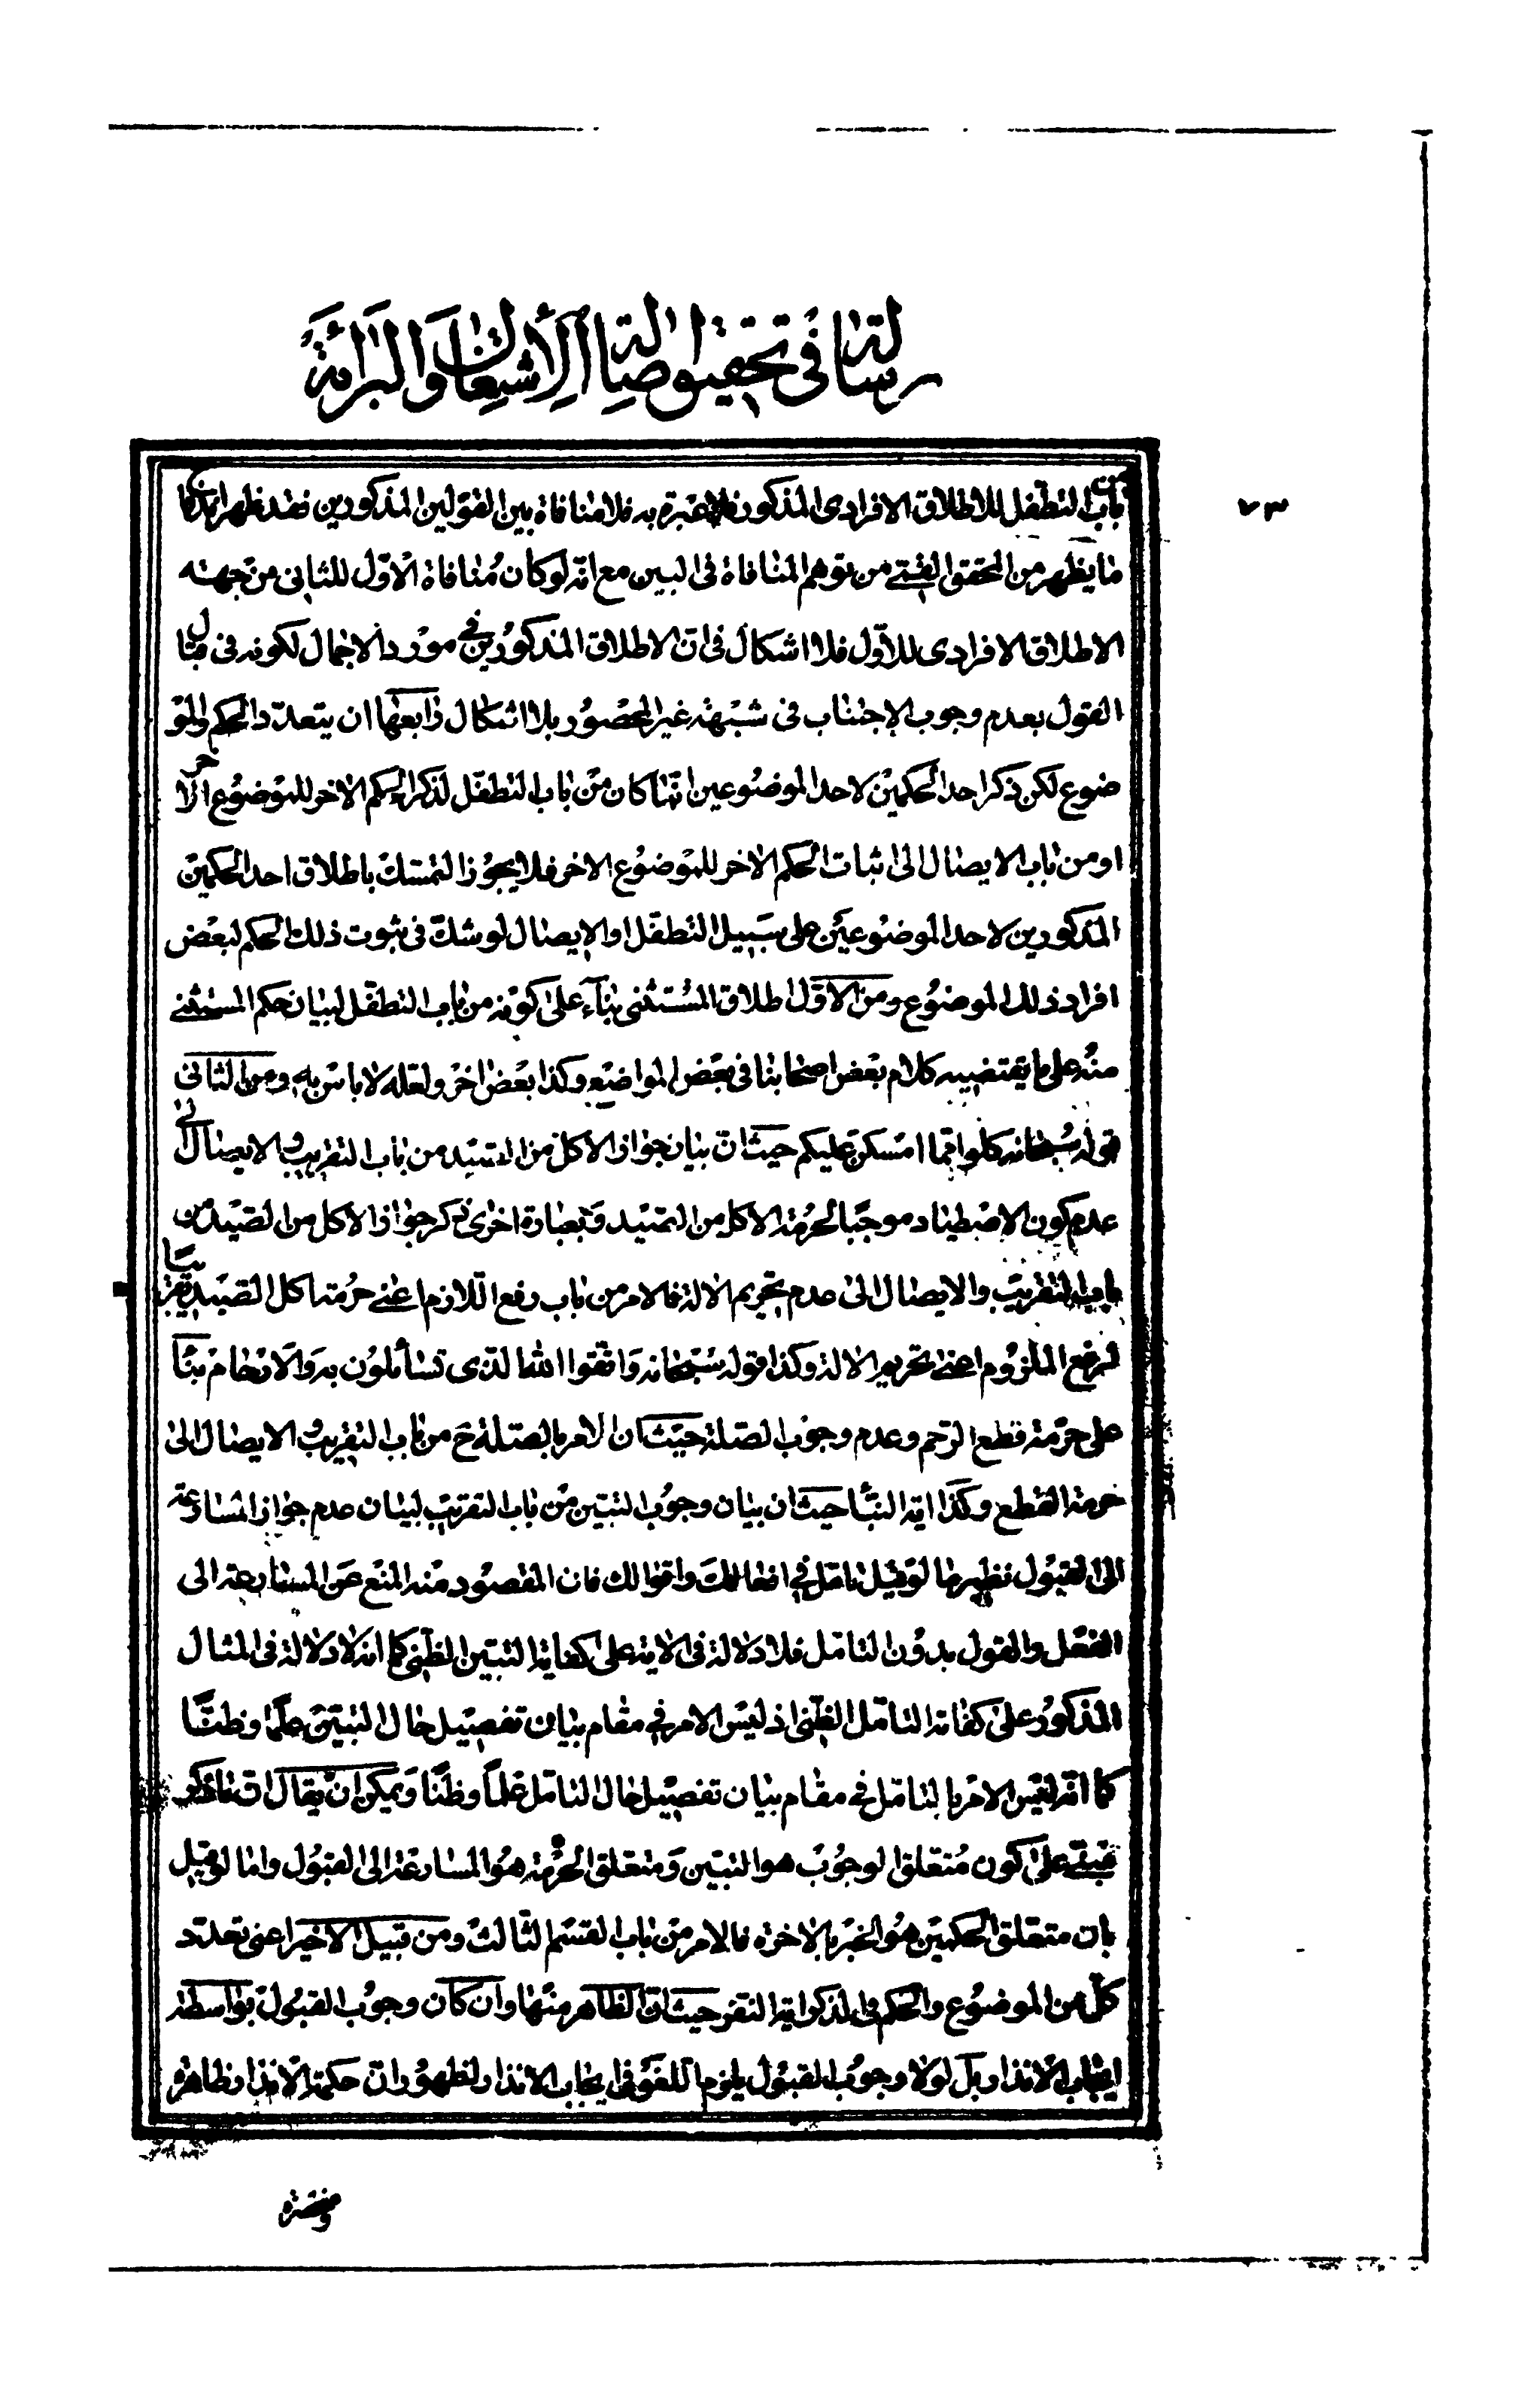 رسالة في تحقيق اصالة الاشتغال والبرائة
٧٣
باب التطفل للاطلاق الافرادى المذكور فلا عبرة به فلا منافاة بين القولين المذكورين فقد ظهر
ما يظهر من المحقق القمى من توهم المنافاة فى البين مع انه لو كان منافاة الاول للثانى من جهته
الاطلاق الافرادى للاول فلا اشكال فى ان الاطلاق المذكورين فى مورد الاجمال لكونه فى قبال
القول بعدم وجوب الاجتناب فى شبهة غير المحصور بلا اشكال رابعها ان يتعدد الحكم والمو
ضوع لكن ذكر احد الحكمين لاحد الموضوعين انما كان من باب التطفل لذكر الحكم الاخر للموضوع الاخر
او من باب الايصال الى اثبات الحكم الاخر للموضوع الاخر فلا يجوز التمسك باطلاق احد الحكمين
المذكورين لاحد الموضوعين على سبيل التطفل او الايصال لو شك فى ثبوت ذلك الحكم لبعض
افراد ذلك الموضوع ومن الاول اطلاق المستثنى بناء على كونه من باب التطفل لبيان حكم المستثنى
منه على ما يقتضيه كلام بعض اصحابنا فى بعض المواضع وكذا بعض اخر ولعله لا باس به ومن الثانى
قوله سبحانه كلوا مما امسكن عليكم حيث ان بيان جواز الاكل من الصيد من باب التقريب والايصال الى
عدم كون الاصطياد موجبا لحرمة الاكل من الصيد وبعبارة اخرى ذكر جواز الاكل من الصيد من
باب التقريب والايصال الى عدم تحريم الالة فالامر من باب رفع اللازم اعنى حرمة اكل الصيد تقريبا
لرفع الملزوم اعنى تحريم الالة وكذا قوله سبحانه واتقوا الله الذى تسائلون به والارحام بناء
على حرمة قطع الرحم وعدم وجوب الصلة حيث ان الامر بالصلة ح من باب التقريب والايصال الى
حرمة القطع وكذا اية النبأ حيث ان بيان وجوب التبين من باب التقريب لبيان عدم جواز المسارعة
الى القبول نظير ما لو قيل تامل فى افعالك واقوالك فان المقصود منه المنع عن المسارعة الى
الفعل والقول بدون التامل فلا دلالة فى الاية على كفاية التبين الظنى كما انه لا دلالة فى المثال
المذكور على كفاية التامل الظنى اذ ليس الامر فى مقام بيان تفصيل حال التبين علما وظنا
كما انه ليس الامر بالتامل فى مقام بيان تفصيل حال التامل علما وظنا ويمكن ان يقال ان ما ذكر
مبتنى على كون متعلق الوجوب هو التبين ومتعلق الحرمة هو المسارعة الى القبول واما لو قيل
بان متعلق الحكمين هو الخبر بالاخرة فالامر من باب القسم الثالث ومن قبيل الاخير اعنى تعدد
كل من الموضوع والحكم فى الذكر اية النفر حيث ان الظاهر منها وان كان وجوب القبول بواسطة
ايجاب الانذار بل لولا وجوب القبول يلزم اللغو فى ايجاب الانذار ولظهور ان حكمة الانذار ظاهرة